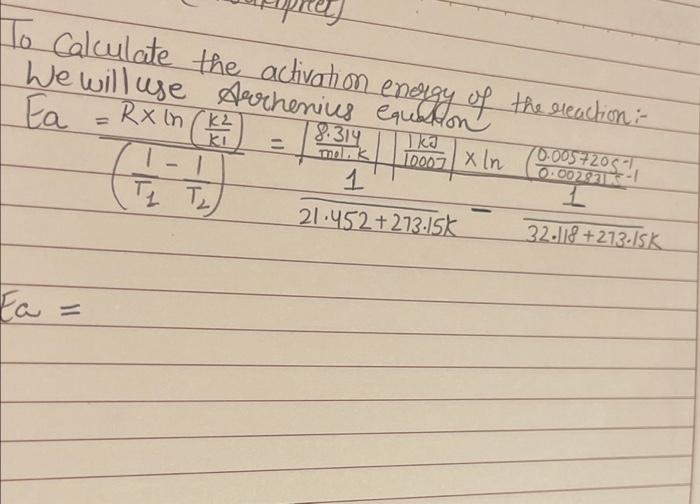 To Calculate the activation energy of the reaction:-
We will use Arrhenius equation
Ea = R × ln (k2/k1) / (1/T1 - 1/T2) = |8.314/mol.k| |1kJ/1000J| × ln (0.005720s-1/0.002831s-1) / 1/21.452+273.15K - 1/32.118+273.15K
Ea =